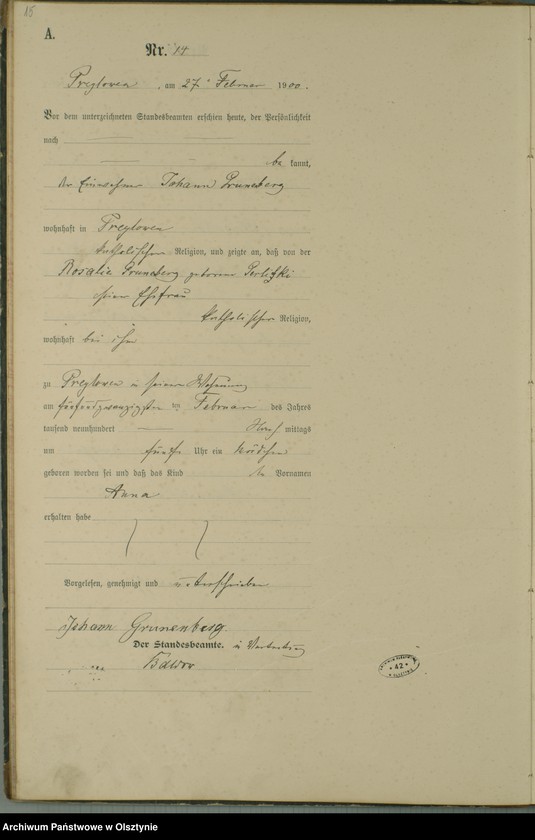 15
A.
Nr. 14
Preylowen, am 27 Februar 1900.
Vor dem unterzeichneten Standesbeamten erschien heute, der Persönlichkeit
nach
be kannt,
der Einwohner Johann Grunenberg
wohnhaft in Preylowen
katholischer Religion, und zeigte an, daß von der
Rosalie Grunenberg geborenen
seiner Ehefrau
katholischer Religion,
wohnhaft bei ihm
zu Preylowen in seiner Wohnung
am fünfundzwanzigsten ten Februar des Jahres
tausend neunhundert Nach mittags
um Uhr ein Mädchen
geboren worden sei und daß das Kind den Vornamen
Anna
erhalten habe
Vorgelesen, genehmigt und unterschrieben
Johann Grunenberg.
Der Standesbeamte. in Vertretung
42
Archiwum Państwowe w Olsztynie